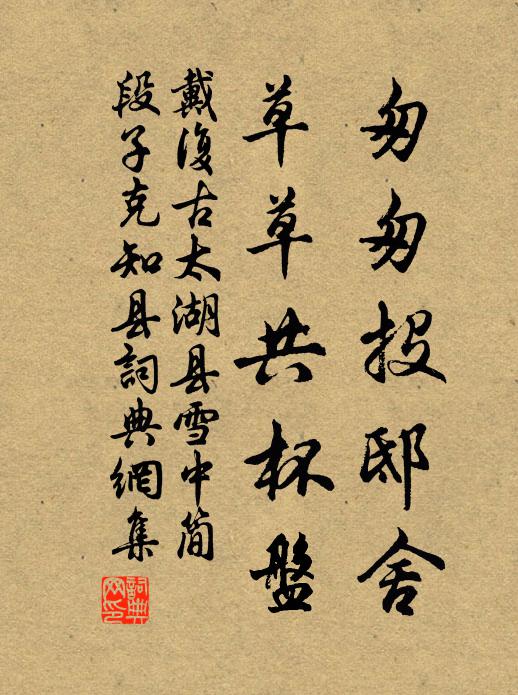 匆匆投邸舍
草草共杯盤
戴復古太湖县雪中简
段子克知县詞典網集
詞典网印